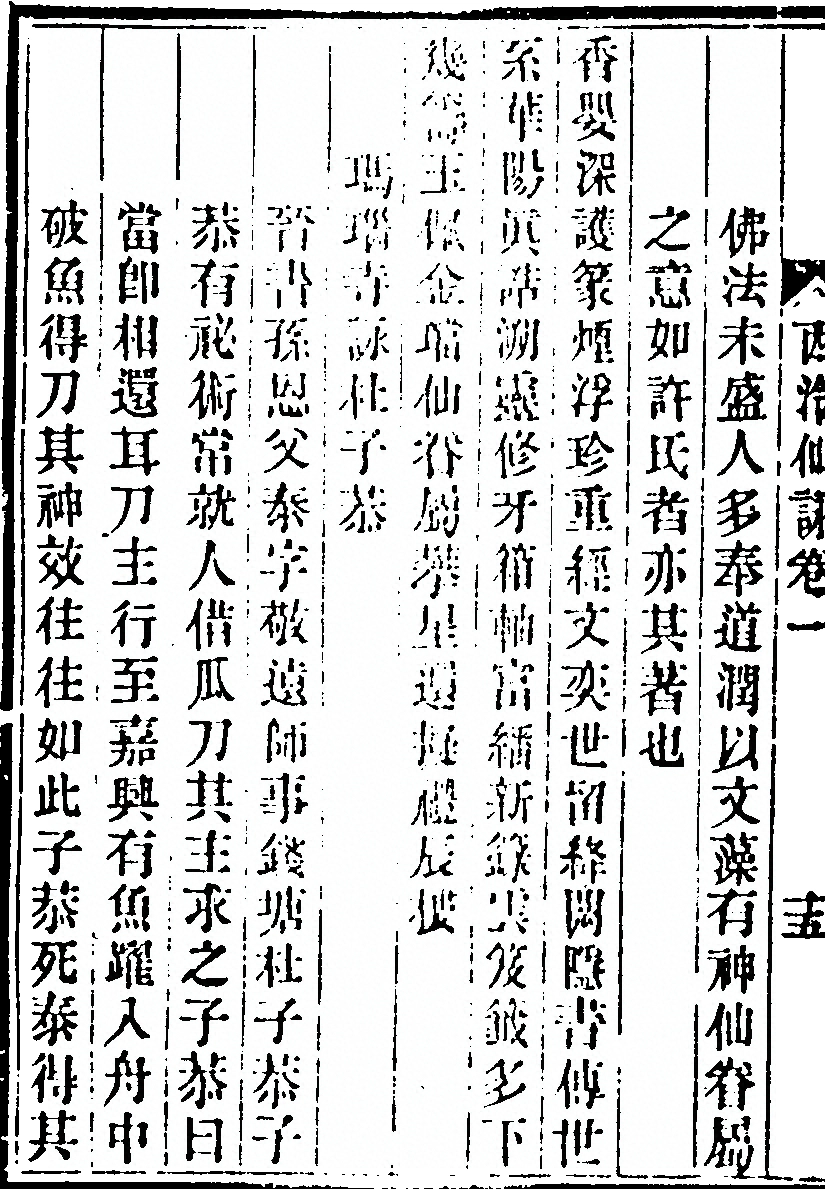 西泠仙詠卷一
十五
佛法未盛人多奉道潤以文藻有神仙眷屬
之意如許氏者亦其著也
香嬰深護篆煙浮珍重經文奕世留絳閣隱書傳世
系華陽眞誥溯靈修牙箱軸富繙新籙雲笈籖多下
幾籌玉佩金璫仙眷屬攀星還擬禮辰樓
瑪瑙寺詠杜子恭
晉書孫恩父泰字敬遠師事錢塘杜子恭子
恭有祕術常就人借瓜刀其主求之子恭曰
當卽相還耳刀主行至嘉興有魚躍入舟中
破魚得刀其神效往往如此子恭死泰得其